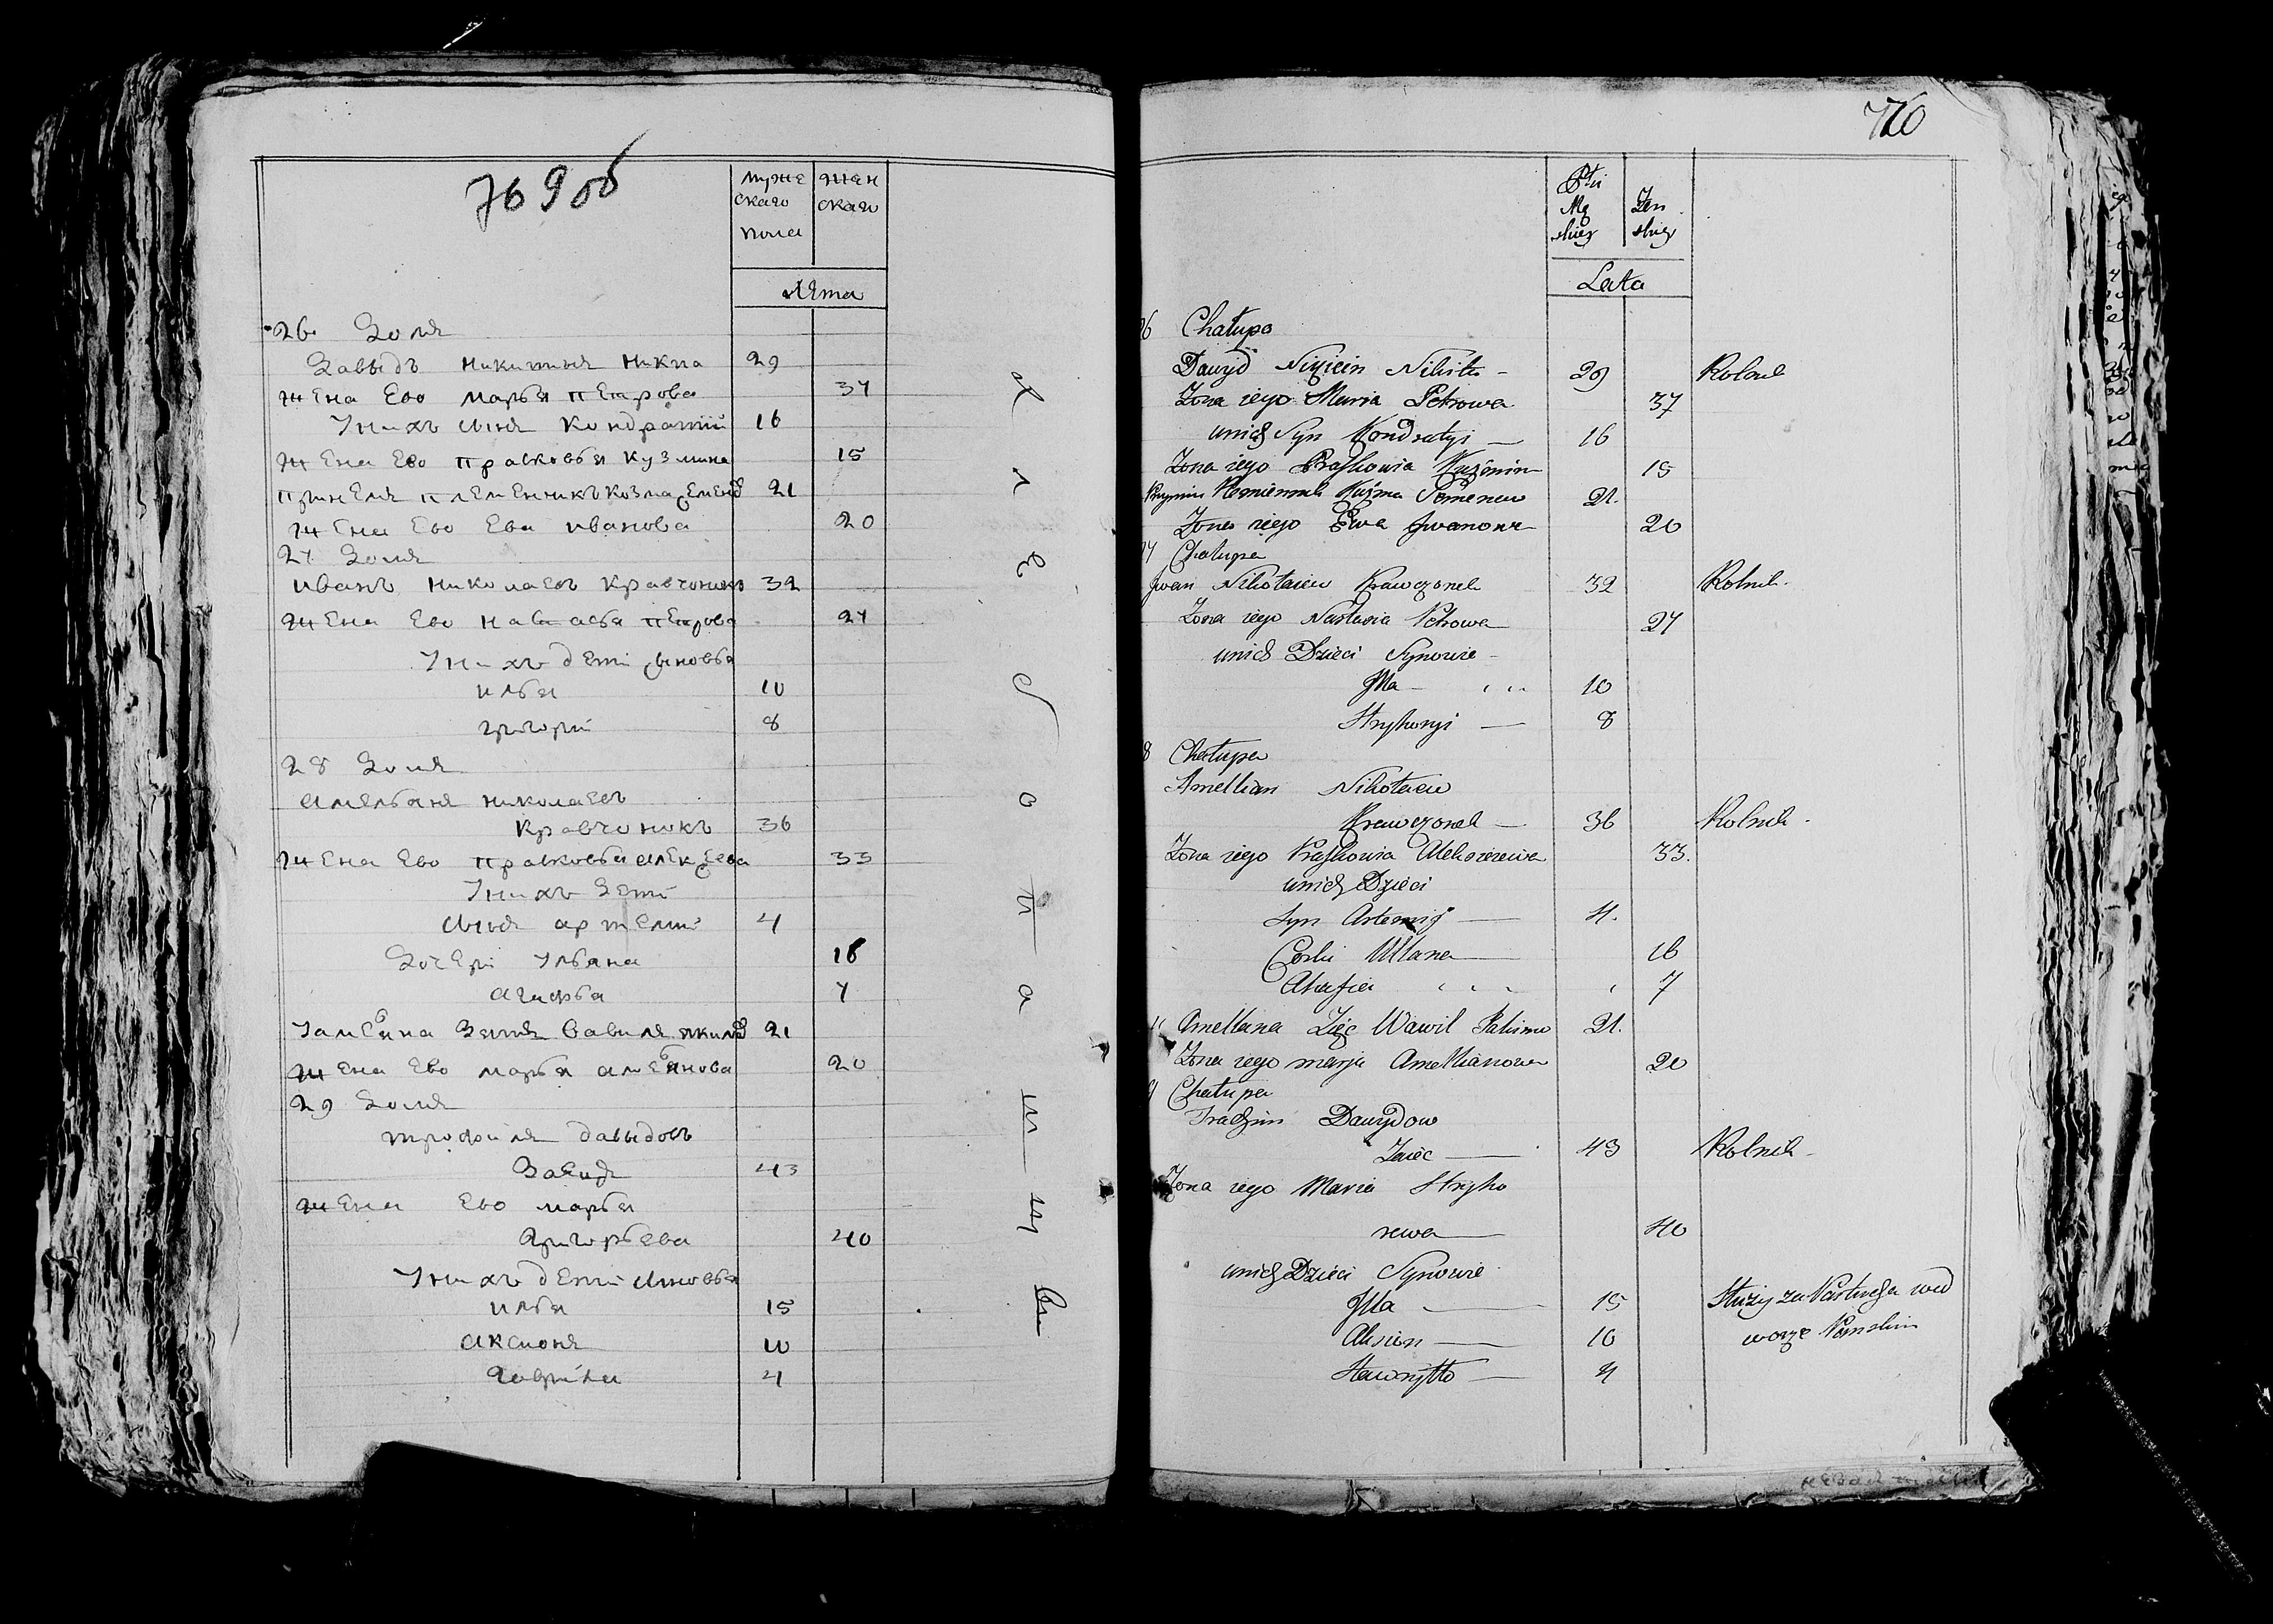 769об
муже
ского
пола
жен
ского
лѣта
26 Домъ
Давыдъ Никитинъ Никита 29
жена Ево Марья Петрова 37
У них сынъ Кондратий 16
жена Ево Прасковья Кузмина 15
принем племенникъ Козма Семенов 21
жена Ево Ева Иванова 20
27 Домъ
Иванъ Николаевъ Кравчонокъ 32
жена Ево Настасья Петрова 27
У нихъ дети сыновья
Илья 10
Григори 8
28 Домъ
Амельянъ Николаевъ
Кравчонокъ 36
жена Ево Прасковья Алексеева 33
У нихъ дети
сынъ Артеми 4
дочери Ульяна 16
Агафья 7
У Амельяна зять Вавила Якимов 21
жена Ево Марья Амельянова 20
29 Домъ
Трофимъ Давыдовъ
Заецъ 43
жена Ево Марья
Григорьева 40
У нихъ дети сыновья
Илья 15
Аксионъ 10
Гаврила 4
770
Płci
Mę
skiey
Żen
skiey
Lata
26 Chałupa
Dawyd Nikitin Nikita 29 Rolnik
Żona iego Maria Petrowa 37
unich Syn Kondratyi 16
Żona iego Praskowia Kuźmin 15
Plemiennik Kuźma Semenow 21.
Żona iego Ewa Iwanowa 20
27 Chałupa
Iwan Nikołaiew Krawczonek 32 Rolnik.
Żona iego Nastasia Petrowa 27
unich Dzieci Synowie
Illa 10
Hryhoryi 8
28 Chałupa
Amellian Nikołaew
Krawczonek 36 Rolnik.
Żona iego Praskowia Alekseiewa 33.
unich Dzieci
Syn Artemij 4.
Corki Ullana 16
Ahafia 7
U Amellana Zięc Wawił Jakimo 21.
Żona iego marja Amellianowa 20
29 Chałupa
Trachim Dawydow
Zaiec 43 Rolnik
Żona iego Maria Hryho
rewa 40
unich Dzieci Synowie
Illa 15 Służy za Pastucha wed
Aksion 10 worze Pańskim
Hawryłło 4